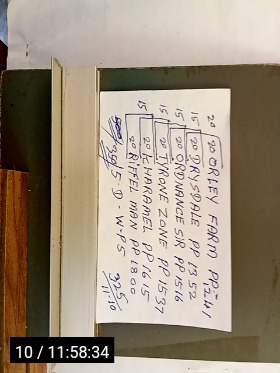 20
20 ORLEY FARM PP 12.41
15
20 DRYSDALE PP 13.52
15
20 ORDNANCE SR PP 15.16
15
20 TYRONE ZONE PP 15.37
20 KHARAMEL PP 16.15
15
20 RIFFEL MAN PP 18.00
5.D.W-PS
325
11.10
10 / 11:58:34